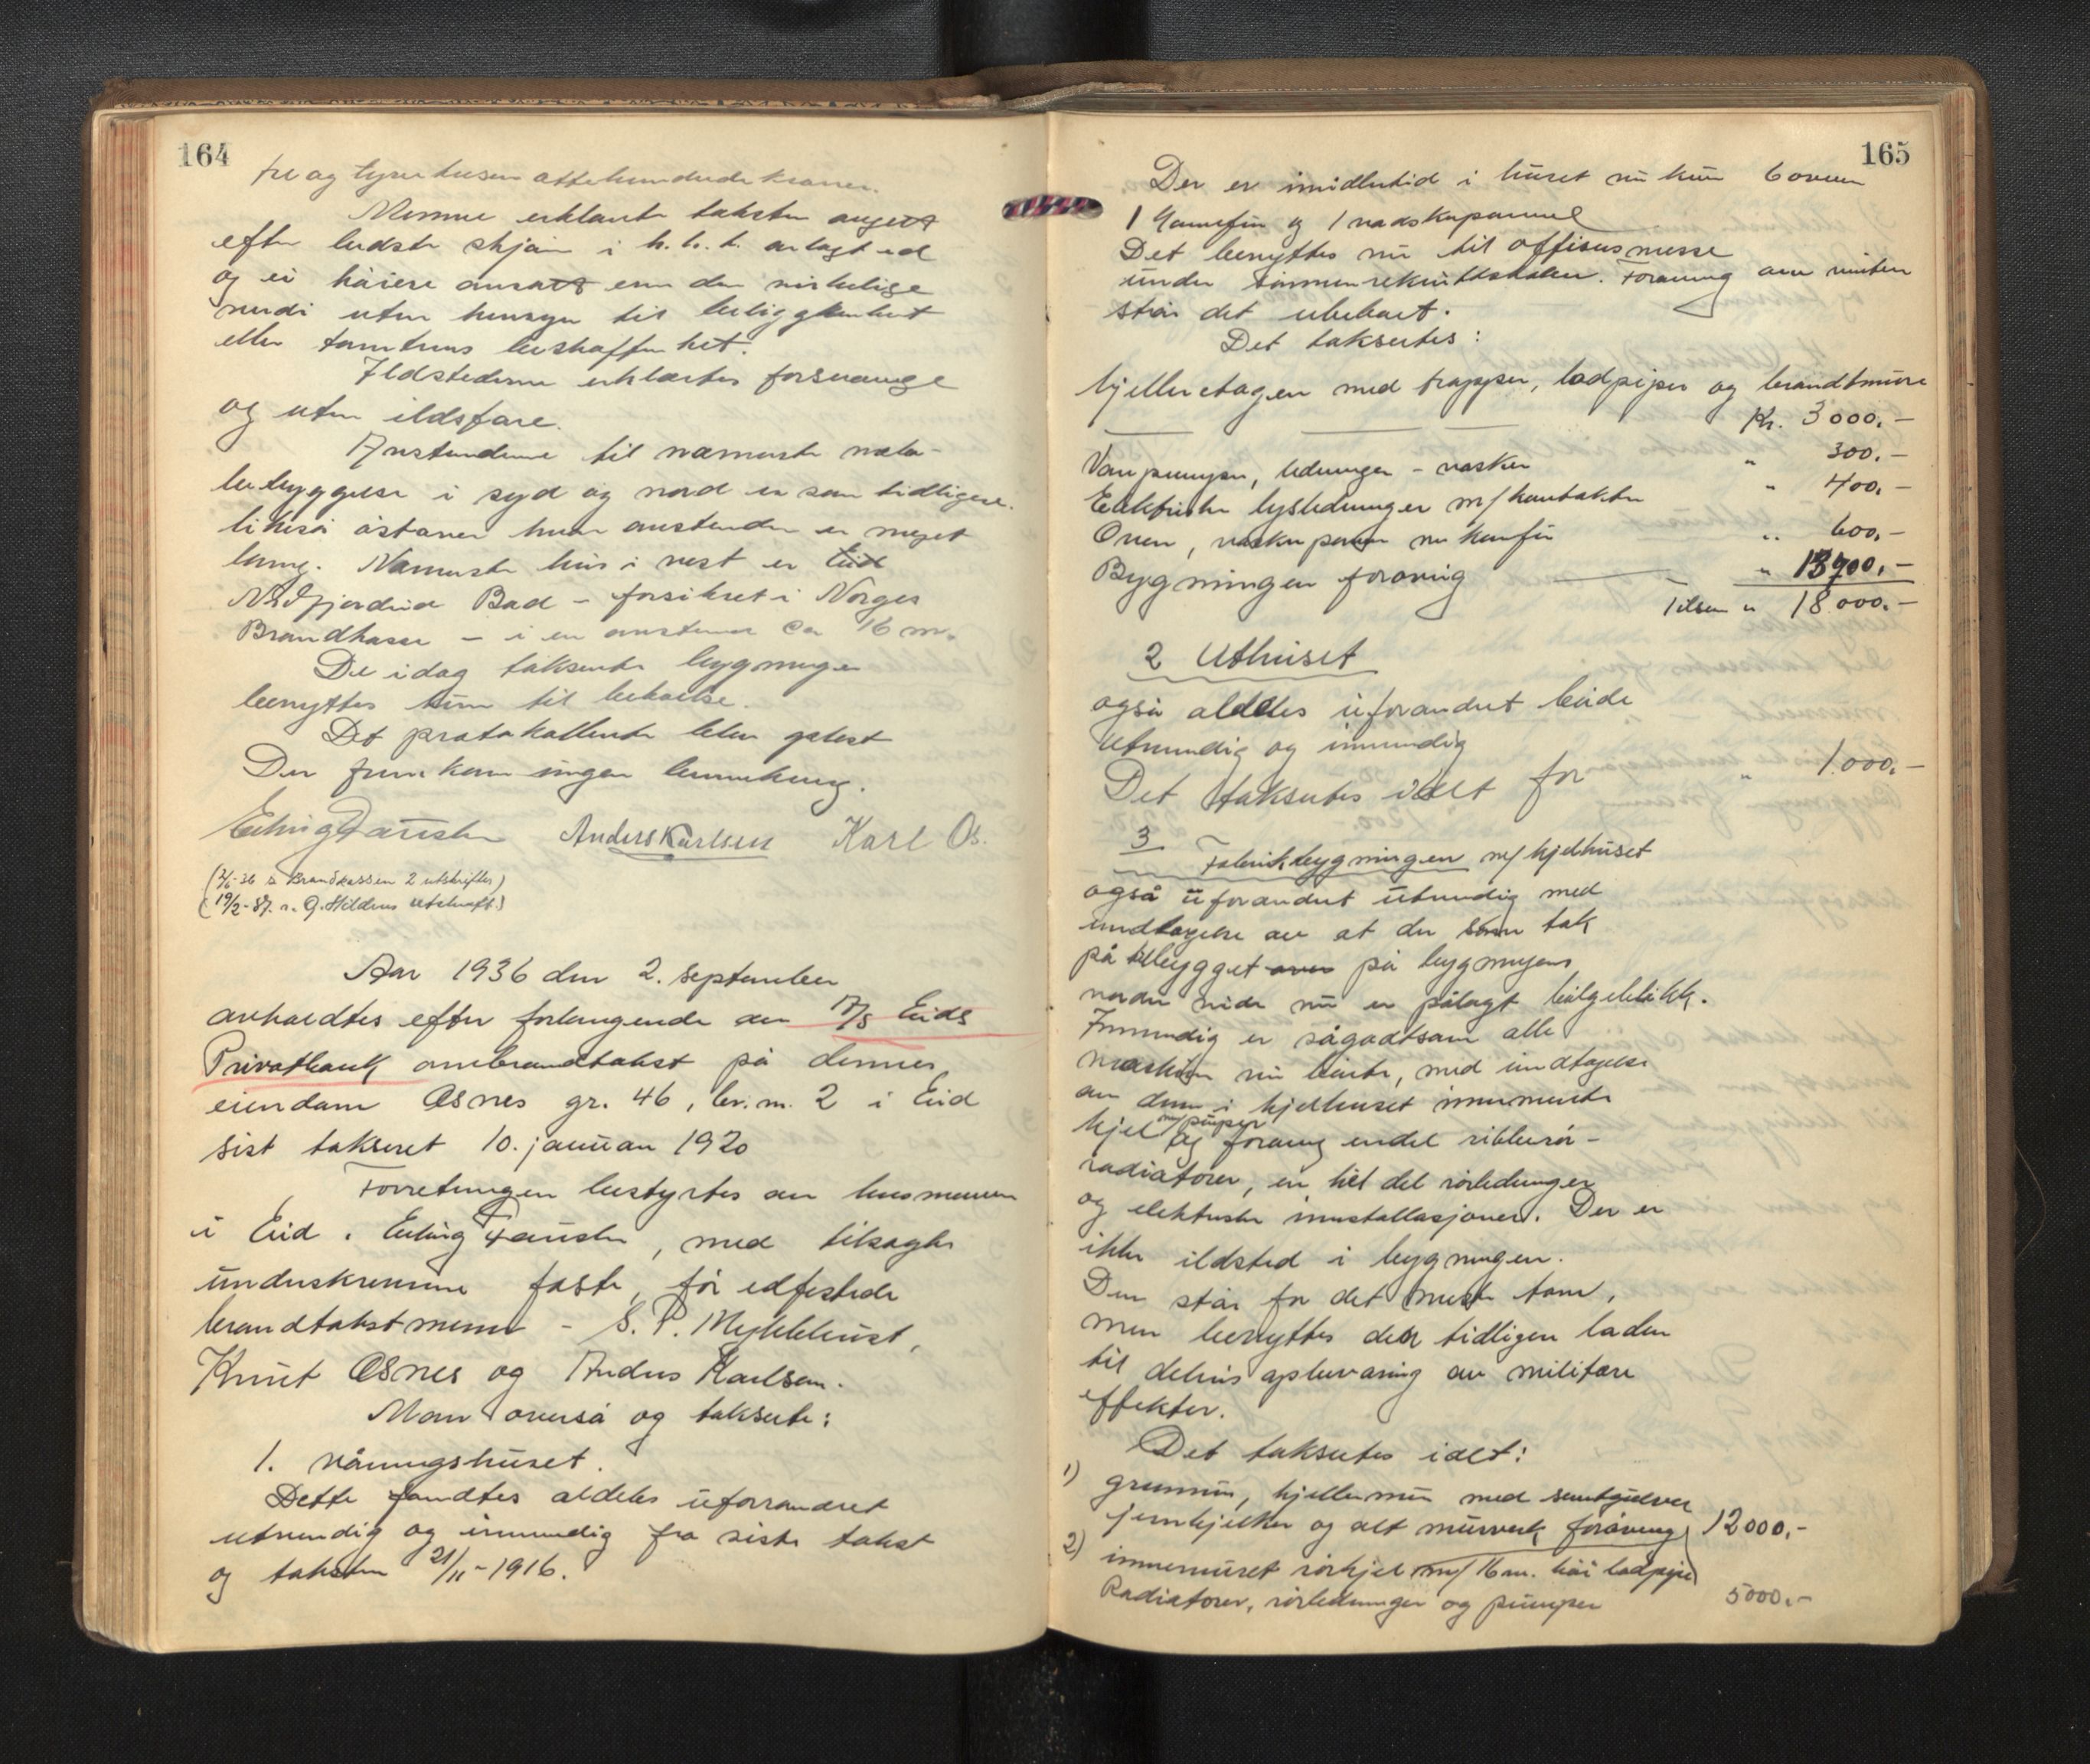 164
tre og tyve tusen attehundrede kroner.
Menne erklærte taksten anget
efter bedste skjøn i h. t. avlagt ed
og ei høiere ansatt enn den virkelige
verdi uten hensyn til beliggenhet
eller tomtens beskaffenhet.
Ildstederne erklærtes forsvarlige
og uten ildsfare.
Avstandene til nærmeste nabo-
bebyggelse i syd og nord er som tidligere.
likeså østover hvor avstanden er meget
lang. Nærmeste hus i vest er Eid
Nordfjordeid Bad – forsikret i Norges
Brandkasse – i en avstand ca 16 m.
De idag takserte bygninger
benyttes kun til beboelse.
Det protokollerte blev oplest
Der fremkom ingen bemerkning.
Erling Faust Anders Karlsen Karl Os.
(2/6-36 s. Brandkassen 2 utskrifter)
(19/2-37. s. G. Hildens utskrift)
Aar 1936 den 2. september
avholdtes efter forlangende av A/S Eids
Privatbank ombrandtakst på dennes
eiendom Osnes gr. 46, br.nr. 2 i Eid
sist taksert 10. januar 1920
Forretningen bestyrtes av lensmannen
i Eid, Erling , med tilsagte
underskrevne faste, før edfestede
brandtakstmenn – S. P. Myklebust,
Knut Osnes og Anders Karlsen.
Man overså og takserte:
1. våningshuset.
Dette fandtes aldeles uforandret
utvendig og innvendig fra siste takst
og taksten 21/11-1916.
165
Der er imidlertid i huset nu kun 6 ovner
1 komfür og 1 vaskepanne
Det benyttes nu til offisersmesse
under sommerrekruttskolen. Forøvrig om vinteren
står det ubebodt.
Det takseres:
Kjelleretagen med trapper, lodpiper og brandtmure
Kr. 3000.-
Vannpumper, ledninger – vasker " 300.-
Elektriske lysledninger m/kontakter " 400.-
Oven, vaskepanne komfür " 600.-
Bygningen forøvrig " 13700.-
Tilsam " 18000.-
2 Uthuset
også aldeles uforandret både
utvendig og innvendig
Det takseres ialt for " 1000.-
3 Fabrikbygningen m/kjelhuset
også uforandret utvendig med
undtagelse av at der som tak
på tilbygget over på bygningens
nordre side nu er pålagt bølgeblikk.
Innvendig er sågodtsom alle
maskiner nu borte, med undtagelse
av den i kjelhuset innmurte
kjel m/pumper og forøvrig endel ribberør-
radiatorer, en hel del rørledninger
og elektriske innstallasjoner. Der er
ikke ildsted i bygningen.
Den står for det meste tom,
men benyttes den tidligere laden
til delvis opbevaring av militære
effekter.
Det takseres ialt:
1) grunnmur, kjellermur med sementgulver
jernbjelker og alt murverk forøvrig 12000.-
2) innemuret rørkjel m/ 16 m. høi lodpipe
Radiatorer, rørledninger og pumper 5000.-